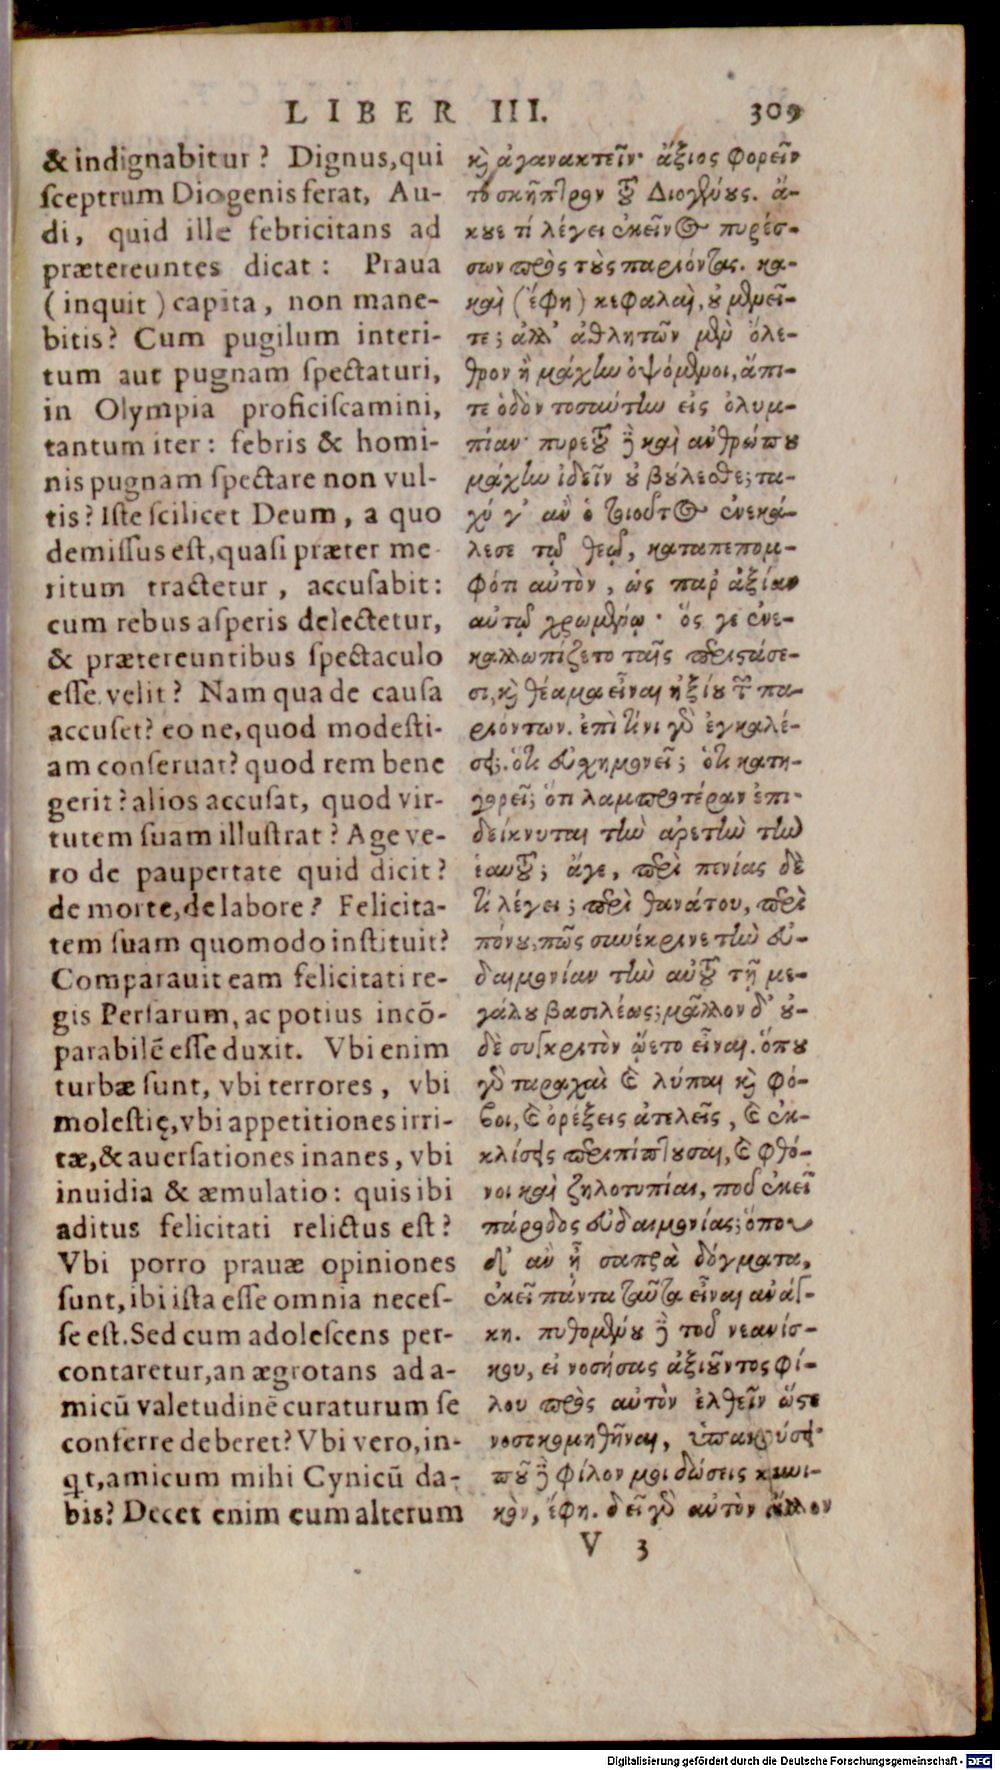 LIBER III. 309
& indignabitur? Dignus, qui
ſceptrum Diogenis ferat, Au-
di, quid ille febricitans ad
prætereuntes dicat: Praua
(inquit) capita, non mane-
bitis? Cum pugilum interi-
tum aut pugnam ſpectaturi,
in Olympia proficiſcamini,
tantum iter: febris & homi-
nis pugnam ſpectare non vul-
tis? Iſte ſcilicet Deum, a quo
demiſſus eſt, quaſi præter me-
ritum tractetur, accuſabit:
cum rebus aſperis delectetur,
& prætereuntibus ſpectaculo
eſſe velit? Nam qua de cauſa
accuſet? eo ne, quod modeſti-
am conſeruat? quod rem bene
gerit? alios accuſat, quod vir-
tutem ſuam illuſtrat? Age ve-
ro de paupertate quid dicit?
de morte, de labore? Felicita-
tem ſuam quomodo inſtituit?
Comparauit eam felicitati re-
gis Perſarum, ac potius incō-
parabilē eſſe duxit. Vbi enim
turbæ ſunt, vbi terrores, vbi
moleſtię, vbi appetitiones irri-
tæ, & auerſationes inanes, vbi
inuidia & æmulatio: quis ibi
aditus felicitati relictus eſt?
Vbi porro prauæ opiniones
ſunt, ibi iſta eſſe omnia neceſ-
ſe eſt. Sed cum adoleſcens per-
contaretur, an ægrotans ad a-
micū valetudinē curaturum ſe
conferre deberet? Vbi vero, in-
qt, amicum mihi Cynicū da-
bis? Decet enim eum alterum
καὶ ἀγανακτεῖν· ἄξιος φορεῖν
τὸ σκῆπτρον τοῦ Διογένους. ἄ-
κουε τί λέγει ἐκεῖνος πυρέσ-
σων πρὸς τοὺς παριόντας. κα-
καὶ (ἔφη) κεφαλαὶ, οὐ μενεῖ-
τε; ἀλλ' ἀθλητῶν μὲν ὄλε-
θρον ἢ μάχην ὀψόμενοι, ἄπι-
τε ὁδὸν τοσαύτην εἰς ὀλυμ-
πίαν· πυρετοῦ δὲ καὶ ἀνθρώπου
μάχην ἰδεῖν οὐ βούλεσθε; τα-
χύ γ' ἂν ὁ τοιοῦτος ἐνεκά-
λεσε τῷ θεῷ, καταπεπομ-
φότι αὐτὸν, ὡς παρ' ἀξίαν
αὐτῷ χρωμένῳ· ὅς γε ἐνε-
καλλωπίζετο ταῖς περιστάσε-
σι, καὶ θέαμα εἶναι ἠξίου τῶν πα-
ριόντων. ἐπὶ τίνι γὰρ ἐγκαλέ-
σει; ὅτι εὐσχημονεῖ; ὅτι κατη-
γορεῖ; ὅτι λαμπροτέραν ἐπι-
δείκνυται τὴν ἀρετὴν τὴν
ἑαυτοῦ; ἄγε, περὶ πενίας δὲ
τί λέγει; περὶ θανάτου, περὶ
πόνου, πῶς συνέκρινε τὴν εὐ-
δαιμονίαν τὴν αὐτοῦ τῇ με-
γάλου βασιλέως; μᾶλλον δ' οὐ-
δὲ συγκριτὸν ᾤετο εἶναι. ὅπου
γὰρ ταραχαὶ καὶ λύπαι καὶ φό-
βοι, καὶ ὀρέξεις ἀτελεῖς, καὶ ἐκ-
κλίσεις περιπίπτουσαι, καὶ φθό-
νοι καὶ ζηλοτυπίαι, ποῦ ἐκεῖ
πάροδος εὐδαιμονίας; ὅπου
δ' ἂν ᾖ σαπρὰ δόγματα,
ἐκεῖ πάντα ταῦτα εἶναι ἀνάγ-
κη. πυθομένου δὲ τοῦ νεανίσ-
κου, εἰ νοσήσας ἀξιοῦντος φί-
λου πρὸς αὐτὸν ἐλθεῖν ὥστε
νοσοκομηθῆναι, ὑπακούσει·
ποῦ δὲ φίλον μοι δώσεις κυνι-
κὸν, ἔφη. δεῖ γὰρ αὐτὸν ἄλλον
V 3
Digitalisierung gefördert durch die Deutsche Forschungsgemeinschaft - DFG